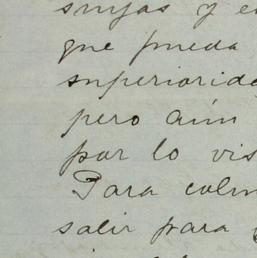 suyas y e
que pueda
superiorida
pero aún
por lo vis
Para colm
salir para